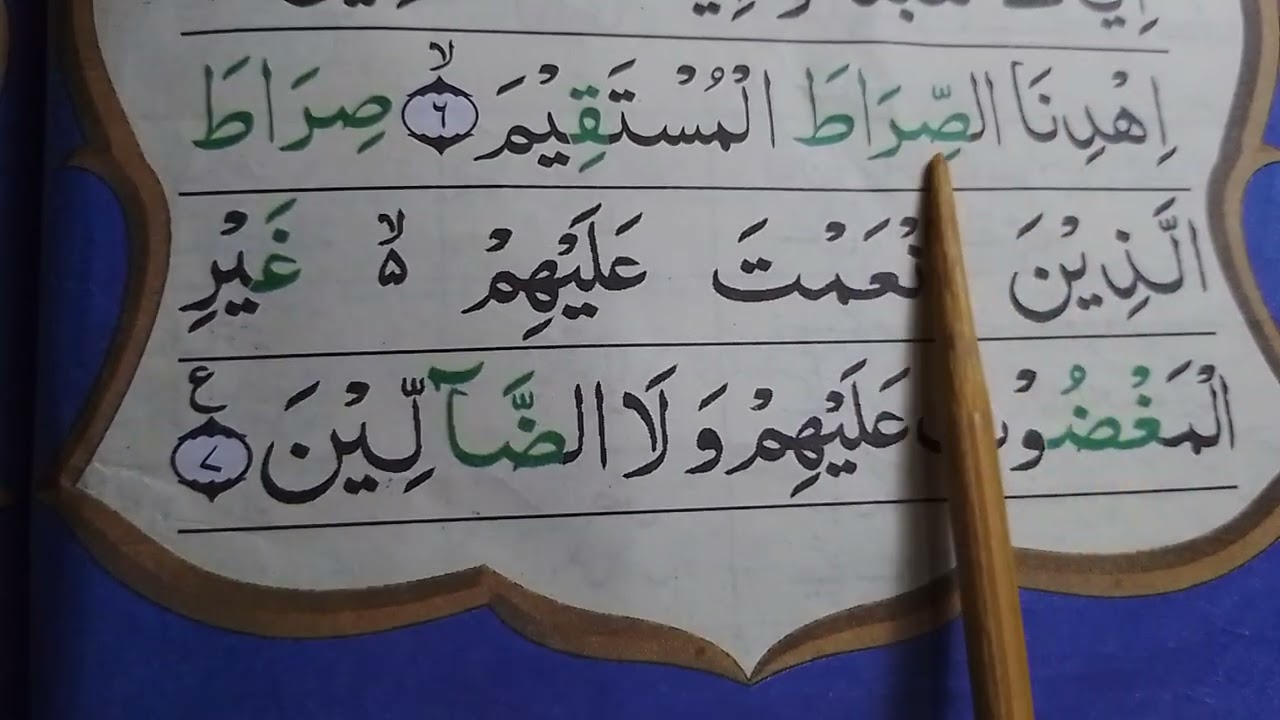 اِهْدِنَا الصِّرَاطَ الْمُسْتَقِيْمَ ۙ ٦ صِرَاطَ
الَّذِيْنَ نْعَمْتَ عَلَيْهِمْ ۙ ۵ غَيْرِ
الْمَغْضُوْبِ عَلَيْهِمْ وَلَا الضَّآلِّيْنَ ع ٧